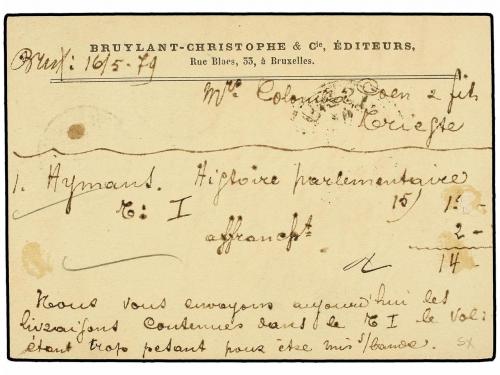 BRUYLANT-CHRISTOPHE & Cie, ÉDITEURS,
Rue Blaes, 33, à Bruxelles.
Brux: 16/5-79
Mrs Colombo Coen & fils
Trieste
1. Hymans. Histoire parlementaire
T: I 15/ 15 -
affrancht. 2 -
14 -
Nous vous envoyons aujourd'hui les
livraisons contenues dans le T I le vol:
étant trop pesant pour être mis s/bande.